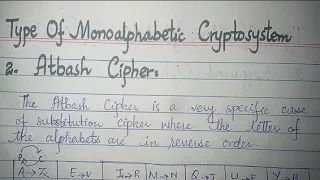 Type Of Monoalphabetic Cryptosystem
2. Atbash Cipher:
The Atbash Cipher is a very specific case
of substitution cipher where the letter of
the alphabets are in reverse order.
P C
A→Z E→V I→R M→N Q→J U→F Y→B